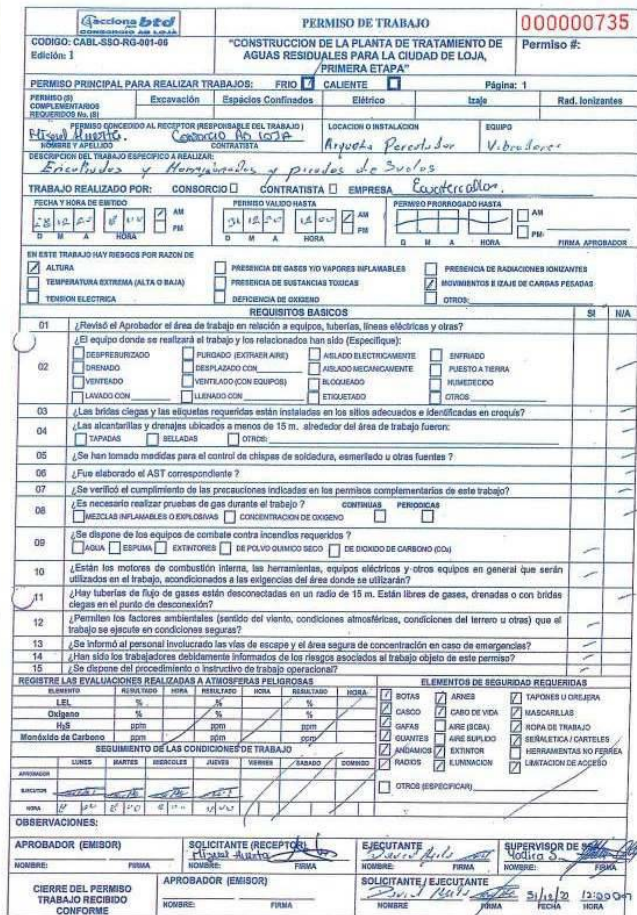 acciona btd
CONSORCIO AB LOJA
PERMISO DE TRABAJO
000000735
CODIGO: CABL-SSO-RG-001-06
Edición: 1
"CONSTRUCCION DE LA PLANTA DE TRATAMIENTO DE AGUAS RESIDUALES PARA LA CIUDAD DE LOJA, PRIMERA ETAPA"
Permiso #:
PERMISO PRINCIPAL PARA REALIZAR TRABAJOS: FRIO CALIENTE Página: 1
PERMISO (S) COMPLEMENTARIOS REQUERIDOS No. (S) Excavación Espacios Confinados Elétrico Izaje Rad. Ionizantes
PERMISO CONCEDIDO AL RECEPTOR (RESPONSABLE DEL TRABAJO) LOCACION O INSTALACION EQUIPO
Miguel Huerta. Consorcio AB LOJA
NOMBRE Y APELLIDO CONTRATISTA
DESCRIPCION DEL TRABAJO ESPECIFICO A REALIZAR:
Suelos
TRABAJO REALIZADO POR: CONSORCIO CONTRATISTA EMPRESA
FECHA Y HORA DE EMITIDO PERMISO VALIDO HASTA PERMISO PRORROGADO HASTA
28 12 20 8 00 AM PM 31 12 20 12 00 AM PM AM PM
D M A HORA D M A HORA D M A HORA FIRMA APROBADOR
EN ESTE TRABAJO HAY RIESGOS POR RAZON DE
ALTURA PRESENCIA DE GASES Y/O VAPORES INFLAMABLES PRESENCIA DE RADIACIONES IONIZANTES
TEMPERATURA EXTREMA (ALTA O BAJA) PRESENCIA DE SUSTANCIAS TOXICAS MOVIMIENTOS E IZAJE DE CARGAS PESADAS
TENSION ELECTRICA DEFICIENCIA DE OXIGENO OTROS:
REQUISITOS BASICOS SI N/A
01 ¿Revisó el Aprobador el área de trabajo en relación a equipos, tuberías, líneas eléctricas y otras?
02 ¿El equipo donde se realizará el trabajo y los relacionados han sido (Especifique):
DESPRESURIZADO PURGADO (EXTRAER AIRE) AISLADO ELECTRICAMENTE ENFRIADO
DRENADO DESPLAZADO CON AISLADO MECANICAMENTE PUESTO A TIERRA
VENTEADO VENTILADO (CON EQUIPOS) BLOQUEADO HUMEDECIDO
LAVADO CON LLENADO CON ETIQUETADO OTROS
03 ¿Las bridas ciegas y las etiquetas requeridas están instaladas en los sitios adecuados e identificadas en croquis?
04 ¿Las alcantarillas y drenajes ubicados a menos de 15 m. alrededor del área de trabajo fueron:
TAPADAS SELLADAS OTROS:
05 ¿Se han tomado medidas para el control de chispas de soldadura, esmerilado u otras fuentes ?
06 ¿Fue elaborado el AST correspondiente ?
07 ¿Se verificó el cumplimiento de las precauciones indicadas en los permisos complementarios de este trabajo?
08 ¿Es necesario realizar pruebas de gas durante el trabajo ? CONTINUAS PERIODICAS
MEZCLAS INFLAMABLES O EXPLOSIVAS CONCENTRACION DE OXIGENO
09 ¿Se dispone de los equipos de combate contra incendios requeridos ?
AGUA ESPUMA EXTINTORES DE POLVO QUIMICO SECO DE DIOXIDO DE CARBONO (CO₂)
10 ¿Están los motores de combustión interna, las herramientas, equipos eléctricos y otros equipos en general que serán utilizados en el trabajo, acondicionados a las exigencias del área donde se utilizarán?
11 ¿Hay tuberías de flujo de gases están desconectadas en un radio de 15 m. Están libres de gases, drenadas o con bridas ciegas en el punto de desconexión?
12 ¿Permiten los factores ambientales (sentido del viento, condiciones atmosféricas, condiciones del terreno u otras) que el trabajo se ejecute en condiciones seguras?
13 ¿Se informó al personal involucrado las vías de escape y el área segura de concentración en caso de emergencias?
14 ¿Han sido los trabajadores debidamente informados de los riesgos asociados al trabajo objeto de este permiso?
15 ¿Se dispone del procedimiento o instructivo de trabajo operacional?
REGISTRE LAS EVALUACIONES REALIZADAS A ATMOSFERAS PELIGROSAS ELEMENTOS DE SEGURIDAD REQUERIDAS
ELEMENTO RESULTADO HORA RESULTADO HORA RESULTADO HORA
LEL % % %
Oxigeno % % %
H₂S ppm ppm ppm
Monóxido de Carbono ppm ppm ppm
BOTAS ARNES TAPONES U OREJERA
CASCO CABO DE VIDA MASCARILLAS
GAFAS AIRE (SCBA) ROPA DE TRABAJO
GUANTES AIRE SUPLIDO SEÑALETICA / CARTELES
ANDAMIOS EXTINTOR HERRAMIENTAS NO FERREA
RADIOS ILUMINACION LIMITACION DE ACCESO
OTROS (ESPECIFICAR)
SEGUIMIENTO DE LAS CONDICIONES DE TRABAJO
LUNES MARTES MIERCOLES JUEVES VIERNES SABADO DOMINGO
APROBADOR
EJECUTOR
HORA
OBSERVACIONES:
APROBADOR (EMISOR) SOLICITANTE (RECEPTOR) EJECUTANTE SUPERVISOR DE
Miguel Huerta David Yadira S.
NOMBRE: FIRMA NOMBRE: FIRMA NOMBRE: FIRMA NOMBRE: FIRMA
CIERRE DEL PERMISO TRABAJO RECIBIDO CONFORME
APROBADOR (EMISOR) SOLICITANTE / EJECUTANTE
David 31/12/20 12:00
NOMBRE: FIRMA NOMBRE: FIRMA FECHA HORA